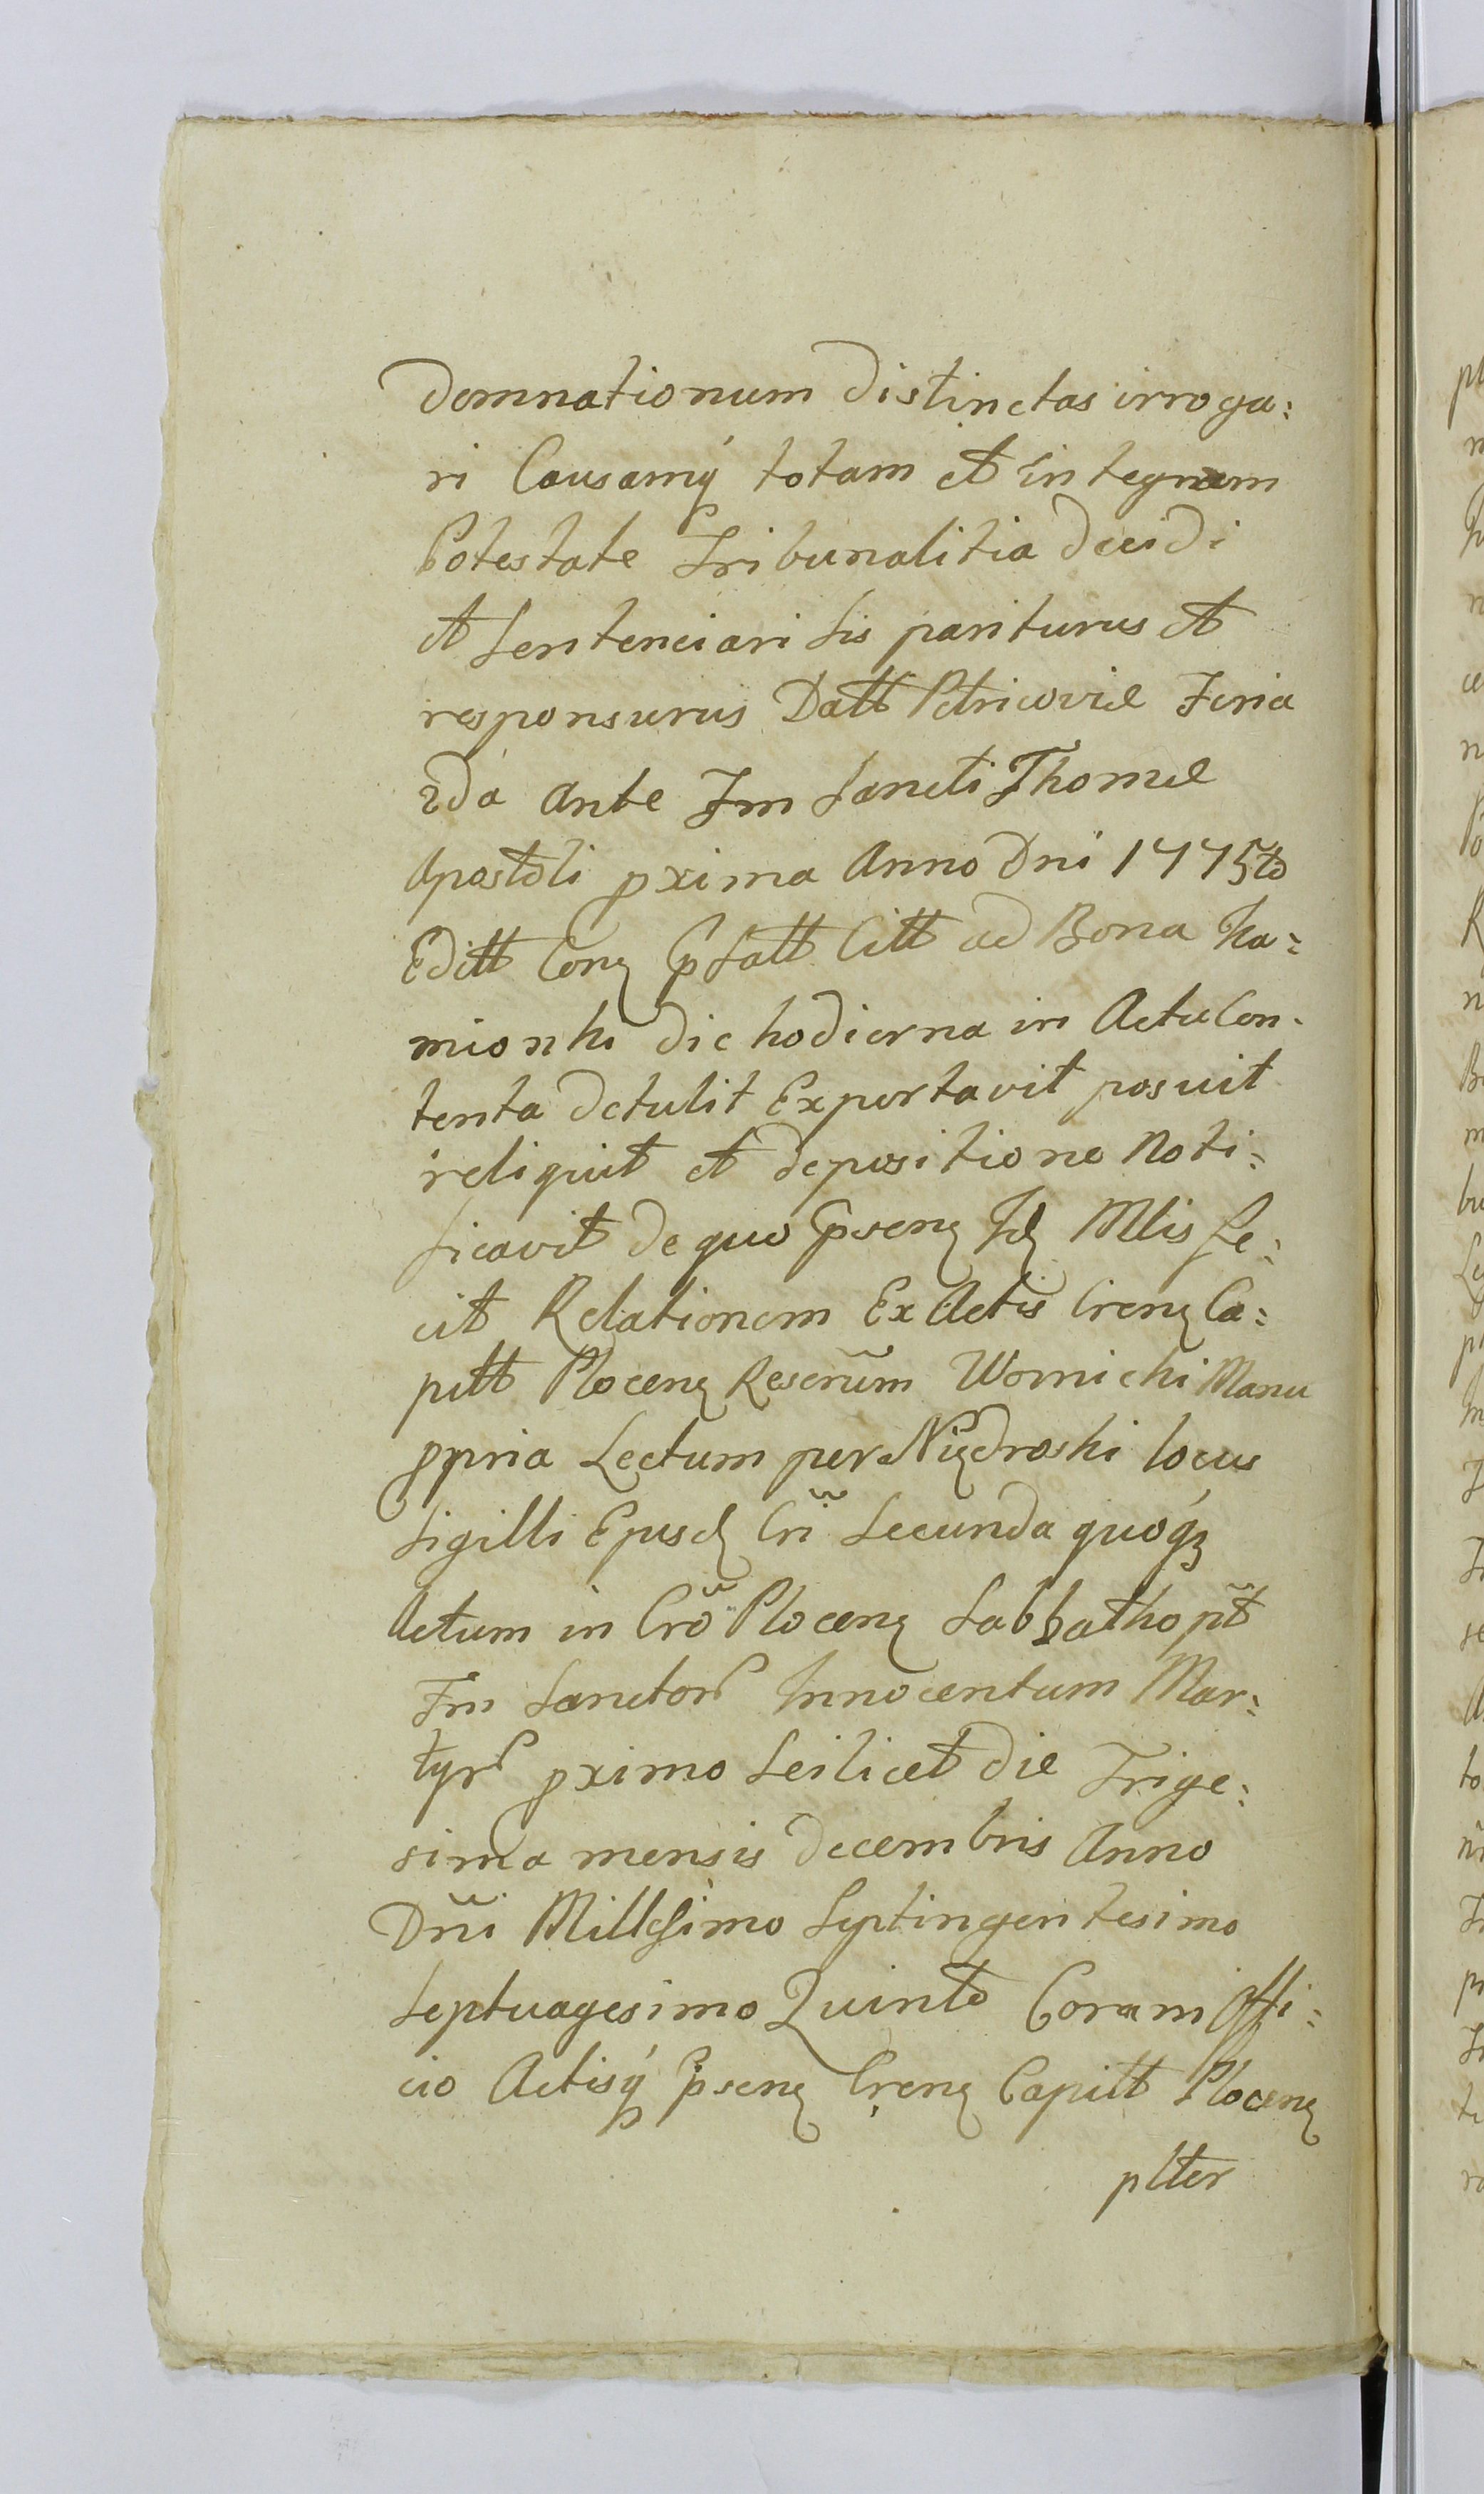 Domnationum distinctas irroga:
ri Causamq́ totam et integram
Potestate Tribunalitia decidi
et Sentenciari Sis pariturus et
responsurus Datt Petricoviæ Feria
2da ante Fm Sancti Thomæ
Apostoli pxima Anno Dni 1775to
Editt Conz Citt ad Bona Ka:
mionki die hodierna in Actu Con-
tenta detulit Exportavit posuit
reliquit et depositione Noti:
ficavit de quo psenz Idz Mlis fe:
cit Relationem Ex Actis Crenz Ca:
pitt Plocenz Rescrũm Wornicki Manu
ppria Lectum per Niedroski locus
Sigilli Ejusdz Crĩ Secunda quóqz
Actum in Crõ Plocenz Sabbatho pt̃
Fm Sanctor Innocentum Mar:
tyr pximo Scilicet die Trige:
sima mensis Decembris Anno
Dñi Millesimo Septingentesimo
Septuagesimo Quinto Coram Offi:
cio Actisq́ psenz Crenz Capitt Plocenz
plter